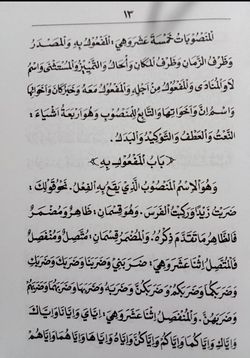 ١٣
اَلْمَنْصُوْبَاتُ خَمْسَةَ عَشَرَ وَهِيَ: اَلْمَفْعُوْلُ بِهِ وَالْمَصْدَرُ
وَظَرْفُ الزَّمَانِ وَظَرْفُ الْمَكَانِ وَالْحَالُ وَالتَّمْيِيْزُ وَالْمُسْتَثْنٰى وَاسْمُ
لَا وَالْمُنَادٰى وَالْمَفْعُوْلُ مِنْ اَجْلِهِ وَالْمَفْعُوْلُ مَعَهُ وَخَبَرُ كَانَ وَاَخَوَاتِهَا
وَاسْمُ اِنَّ وَاَخَوَاتِهَا وَالتَّابِعُ لِلْمَنْصُوْبِ وَهُوَ اَرْبَعَةُ اَشْيَاءَ:
اَلنَّعْتُ وَالْعَطْفُ وَالتَّوْكِيْدُ وَالْبَدَلُ.
﴿بَابُ الْمَفْعُوْلِ بِهِ﴾
وَهُوَ الْاِسْمُ الْمَنْصُوْبُ الَّذِيْ يَقَعُ بِهِ الْفِعْلُ. نَحْوُ قَوْلِكَ:
ضَرَبْتُ زَيْدًا وَرَكِبْتُ الْفَرَسَ. وَهُوَ قِسْمَانِ: ظَاهِرٌ وَمُضْمَرٌ
فَالظَّاهِرُ مَا تَقَدَّمَ ذِكْرُهُ. وَالْمُضْمَرُ قِسْمَانِ: مُتَّصِلٌ وَمُنْفَصِلٌ
فَالْمُتَّصِلُ اثْنَا عَشَرَ وَهِيَ: ضَرَبَنِيْ وَضَرَبَنَا وَضَرَبَكَ وَضَرَبَكِ
وَضَرَبَكُمَا وَضَرَبَكُمْ وَضَرَبَكُنَّ وَضَرَبَهُ وَضَرَبَهَا وَضَرَبَهُمَا وَضَرَبَهُمْ
وَضَرَبَهُنَّ. وَالْمُنْفَصِلُ اثْنَا عَشَرَ وَهِيَ: اِيَّايَ وَاِيَّانَا وَاِيَّاكَ
وَاِيَّاكِ وَاِيَّاكُمَا وَاِيَّاكُمْ وَاِيَّاكُنَّ وَاِيَّاهُ وَاِيَّاهَا وَاِيَّاهُمَا وَاِيَّاهُمْ